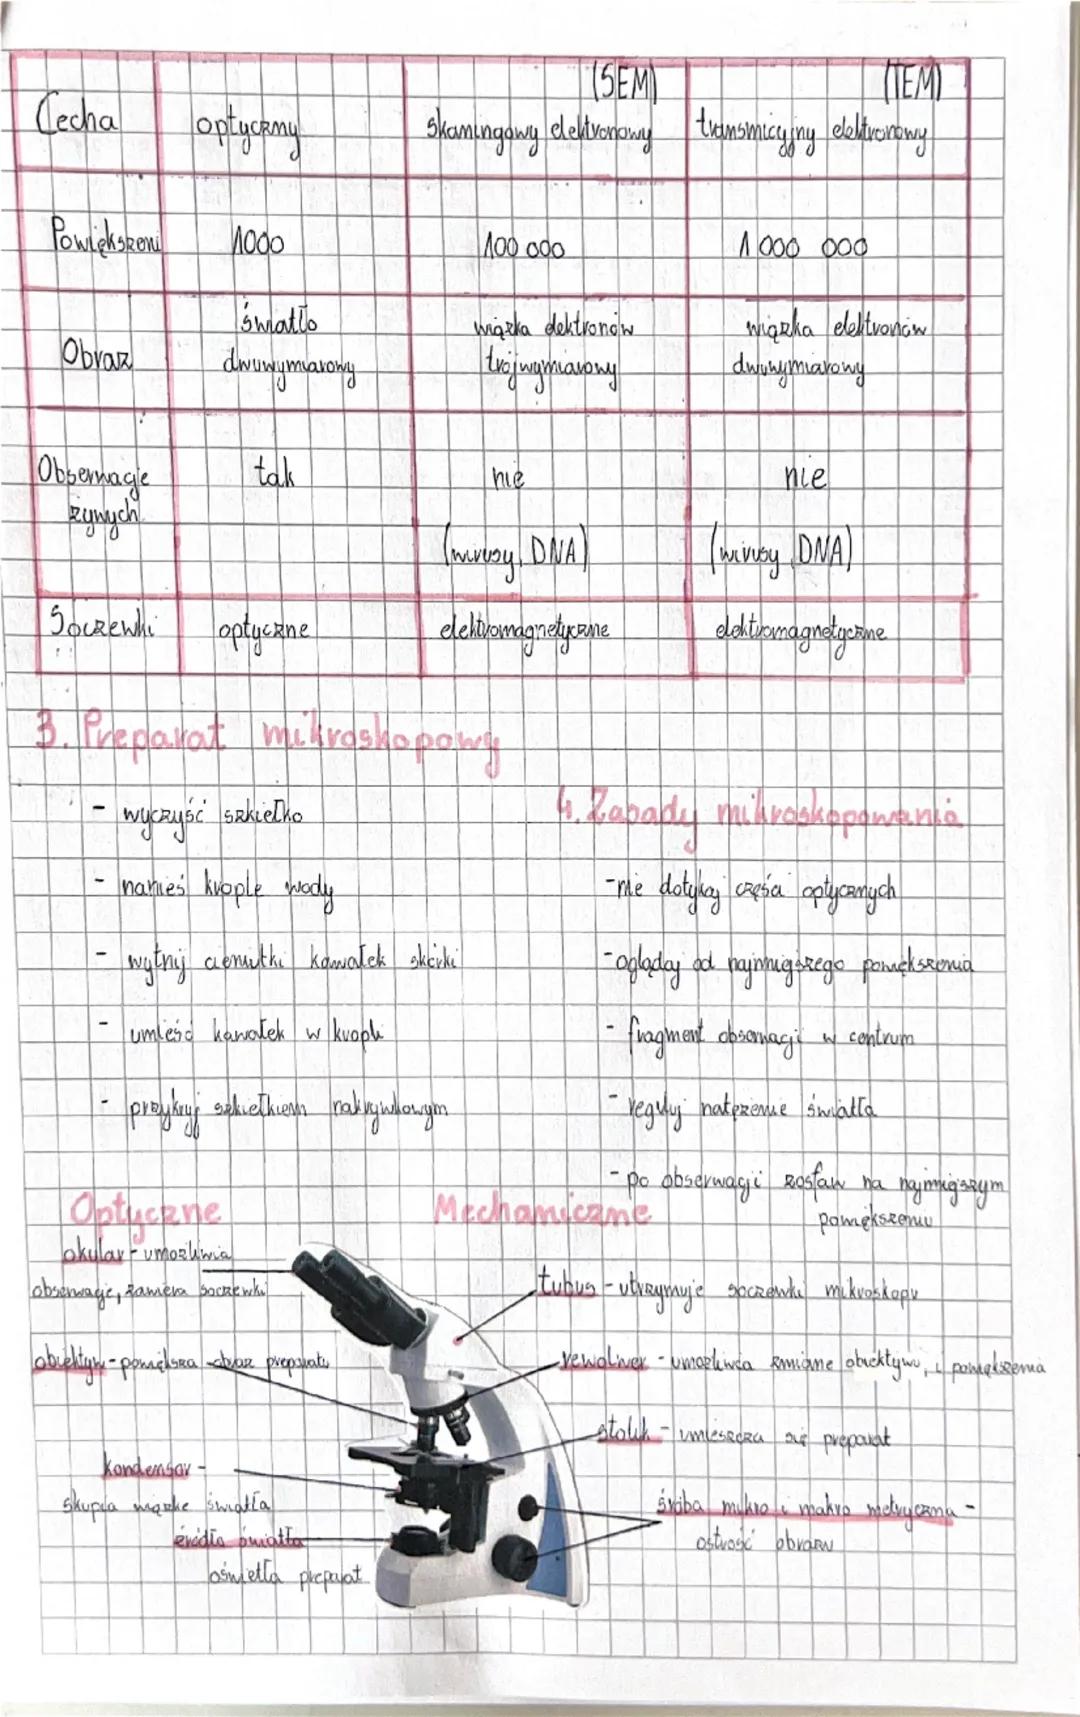 Cecha optyczny (SEM) skaningowy elektronowy (TEM) transmicyjny elektronowy
Powiększeni 1000 100 000 1 000 000
Obraz światło dwuwymiarowy wiązka elektronów trójwymiarowy wiązka elektronów dwuwymiarowy
Obserwacje żywych tak nie (wirusy, DNA) nie (wirusy, DNA)
Soczewki optyczne elektromagnetyczne elektromagnetyczne
3. Preparat mikroskopowy
- wyczyść szkiełko
- nanieś krople wody
- wytnij cieniutki kawałek skórki
- umieść kawałek w kropli
- przykryj szkiełkiem nakrywkowym
4. Zasady mikroskopowania
- nie dotykaj części optycznych
- oglądaj od najmniejszego powiększenia
- fragment obserwacji w centrum
- reguluj natężenie światła
- po obserwacji zostaw na najmniejszym
powiększeniu
Optyczne
okular - umożliwia
obserwacje, zawiera soczewki
obiektyw - powiększa obraz preparatu
kondensor -
skupia wiązke światła
źródło światła
oświetla preparat
Mechaniczne
tubus - utrzymuje soczewki mikroskopu
rewolwer - umożliwia zmiane obiektywu, i powiększenia
stolik - umieszcza się preparat
śróba mikro i makro metryczna -
ostrość obrazu